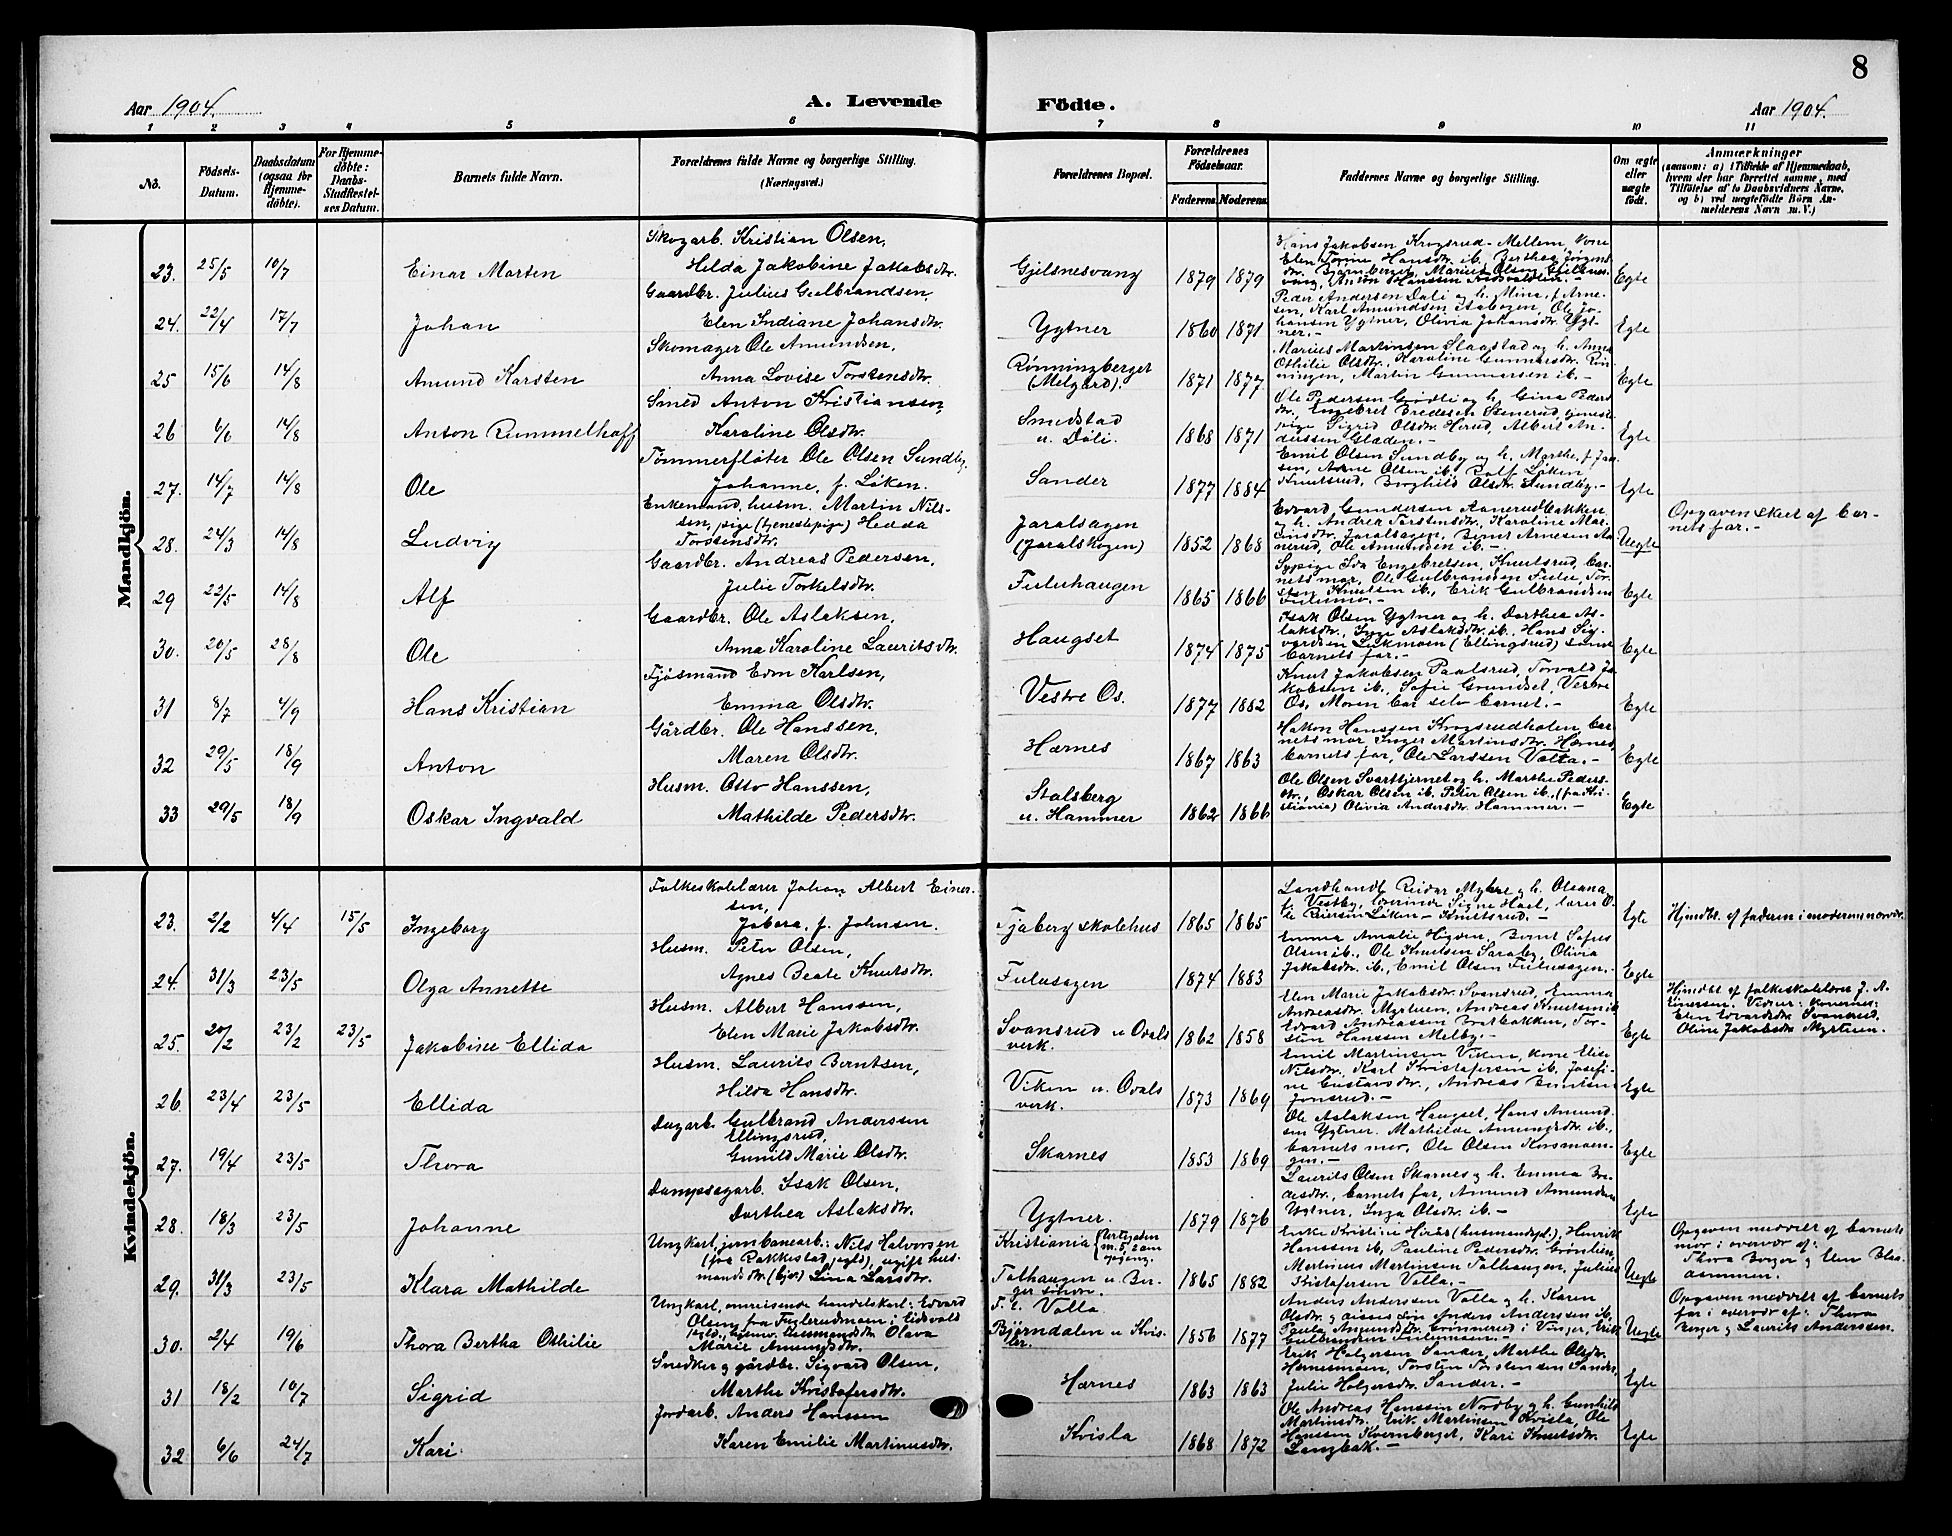 8
Aar 1904. A. Levende Födte. Aar 1904.
1 2 3 4 5 6 7 8 9 10 11
No. Födsels-Datum. Daabsdatum (ogsaa for Hjemme-döbte). For Hjemme-döbte: Daabs-Stadfæstel-ses Datum. Barnets fulde Navn. Forældrenes fulde Navne og borgerlige Stilling. (Næringsvei.) Forældrenes Bopæl. Forældrenes Födselsaar. Faderens. Moderens. Faddernes Navne og borgerlige Stilling. Om ægte eller uægte født. Anmærkninger
(saasom: a) i Tilfælde af Hjemmedaab,
hvem der har forrettet samme, med
Tilföielse af to Daabsvidners Navne,
og b) ved uægtefödte Börn An-
melderens Navn m. V.)
Mandkjön.
23. 25/5 10/7 Einar Marten
Skogarb. Kristian Olsen,
Hilda Jakobine Jakobsdtr.
Gjelsnesvang 1879 1879
Hans Jakobsen Krogsrud-Mellem, kone
Elen Torine Hansdtr. ib. Berthea Jörgens
dtr. Bjørnberget, Marius Olsen Gjelsnes-
vang, Anton Hanssen
Egte
24. 22/4 17/7 Johan
Gaardbr. Julius Gulbrandsen,
Elen Indiane Johansdtr.
Ygtner 1860 1871
Peder Andersen Dali og h. Mina, f. Arne-
sen, Karl Amundsen Isabogen, Ole Jo-
hansen Ygtner, Olivia Johansdtr. Ygt-
ner.-
Egte
25 15/6 14/8 Amund Karsten
Skomager Ole Amundsen,
Anna Lovise Torstensdtr.
Rønningberget
(Melgård). 1871 1877
Marius Martinsen Slaastad og h. Anne
Othilie Olsdtr., Karoline Gunnarsdtr. Røn-
ningen, Martin Gunnarsen ib.-
Egte
26 6/6 14/8 Anton Rummelhoff
Smed Anton Kristiansen,
Karoline Olsdtr.
Smedstad
u. Dåli. 1868 1871
Ole Pedersen Grødli og h. Gina Peders
dtr., Engebret Bredesen Stenerud, tjeneste
pige Sigrid Olsdtr. Hérud, Albert An-
derssen Glæden.-
Egte
27. 14/7 14/8 Ole
Tømmerfløter Ole Olsen Sundby,
Johanne, f. Løken.
Sander 1877 1884
Emil Olsen Sundby og h. Marthe, f. Jan-
sen, Arne Olsen ib., Rolf Løken
Knutsrud, Borghild Olsdtr. Sundby.-
Egte
28. 24/3 14/8 Ludvig
Enkemand, husm. Martin Nils-
sen, pige (tjenestepige) Hedda
Torstensdtr.
Jaralsagen
(Jaralskogen) 1852 1868
Edvard Gundersen Aanerudbakken
og h. Andrea Torstensdtr., Karoline Mar-
tinsdtr. Jaralsagen, Bernt Arnesen Aa
nerud, Ole Amundsen ib.-
Uegte
Opgaven skeet af bar-
nets far.-
29 22/5 14/8 Alf
Gaardbr. Andreas Pedersen,
Julie Torkelsdtr.
Fuluhaugen 1865 1866
Sypige Ida Engebretsen, Knutsrud, bar-
nets mor, Ole Gulbrandsen Fulu, Tor-
sten Knutsen ib., Erik Gulbrandsen
Fulumo.-
Egte
30. 20/5 28/8 Ole
Gaardbr. Ole Aslaksen,
Anna Karoline Lauritsdtr.
Haugset 1874 1875
Isak Olsen Ygtner og h. Dorthea As-
laksdtr., Inga Aslaksdtr. ib., Hans Sig-
vardsen Lekmoen (Ellingsrud) samt
barnets far.-
Egte
31 8/7 4/9 Hans Kristian
Fjøsmand Edm Karlsen,
Emma Olsdtr.
Vestre Os. 1877 1882
Knut Jakobsen Paalsrud, Torvald Ja
kobsen ib., Sofie Grundset, Vestre
Os. Moren bar selv barnet.-
Egte
32 29/5 18/9 Anton
Gårdbr. Ole Hanssen,
Maren Olsdtr.
Hærnes 1867 1863
Håkon Hanssen Krogsrudholen, bar-
nets mor, Inger Martinsdtr. Hærnes,
barnets far, Ole Larssen Valla.-
Egte
33 29/5 18/9 Oskar Ingvald
Husm. Otto Hanssen,
Mathilde Pedersdtr.
Stalsberg
u. Hammer 1862 1866
Ole Olsen Svarttjernet og h. Marthe Peders-
dtr., Oskar Olsen ib. Peter Olsen ib. (fra Kri-
stiania) Olivia Andersdtr. Hammer.-
Egte
Kvindekjön.
23. 2/2 4/4 15/5 Ingeborg
Folkeskolelærer Johan Albert Einer-
sen,
Jobera, f. Johnsen.
Tjaberg skolehus 1865 1865
Landhandl. Reidar Myhre og h. Olsana
f. Vestby, lærerinde Signe Hoel, lærer O-
le Reiersen Løken - Knutsrud.-
Egte
Hjmdbt. af faderen i moderens nærvær.
24. 31/3 23/5 Olga Annette
Husm. Peter Olsen,
Agnes Beate Knutsdtr.
Fulusagen 1874 1883
Emma Amalie Higden, Bernt Sofus
Olsen ib., Ole Knutsen Saraby, Olivia
Jakobsdtr. ib., Emil Olsen Fulusagen.-
Egte
25. 20/2 23/2 23/5 Jakobine Ellida
Husm. Albert Hanssen,
Elen Marie Jakobsdtr.
Svansrud u Ovals
verk. 1862 1858
Elen Marie Jakobsdtr. Svandsrud, Emma
Andreasdtr. Myrtuen, Andreas Knutsen ib
Edvard Andreassen Bratbakken, Tor-
stein Hanssen Melby.-
Egte
Hjmdbt. af folkeskolelærer J. A.
Einersen. Vidner: konerne:
Elen Edvardsdtr. Svansrud,
Oline Jakobsdtr. Myrtuen.
26. 23/4 23/5 Ellida
Husm. Laurits Berntsen,
Hilda Hansdtr.
Viken u. Ovals
verk. 1873 1869
Emil Martinsen Viken, kone Elise
Nilsdtr., Karl Kristofersen ib. Josefi-
ne Gustavsdtr., Andreas Berntsen
Jonsrud.-
Egte
27. 19/4 23/5 Thora
Dagarb. Gulbrand Anderssen
Ellingsrud,
Gunild Marie Olsdtr.
Skarnes 1853 1869
Ole Aslaksen Haugset, Hans Amund-
sen Ygtner. Mathilde Amundsdtr ib.,
barnets mor, Ole Olsen Korsmoen-
gen.-
Egte
28. 18/3 23/5 Johanne
Dampsagarb. Isak Olsen,
Dorthea Aslaksdtr.
Ygtner. 1879 1876
Laurits Olsen Skarnes og h. Emma Bre-
desdtr., barnets far, Amund Amundsen
Ygtner, Inga Olsdtr. ib.-
Egte
29. 31/3 23/5 Klara Mathilde
Ungkarl, jernbanearb.: Nils Halvorsen
(fra Rakkestad, opld), ugift hus-
mandsdtr. (bjor) Lina Larsdtr.
Kristiania
m. 5, 2 om
opgang.
Tolhaugen u Ber-
ger søndre. 1865 1882
Erke Kristine Hirås (husmandspl.), Henrik
Hanssen ib, Pauline Pedersdtr. Grønlien,
Martinus Martinsen Tolhaugen, Julius
Kristofersen Valla.-
Uegte
Opgaven meddelt af barnets
mor i overvær af:
Thora Berger og Elen Blaa-
asmoen.-
30. 2/4 19/6 Thora Bertha Othilie
Ungkarl, omreisende handelskarl: Edvard
Olsen, fra Fuglerudmoen i Eidsvold
husmandsdtr. Olava
Marie Amundsdtr.
Valla
Bjørndalen u Kvis-
ler. 1856 1877
Anders Anderssen Valla og h. Karen
Olsdtr. og disses søn Anders Anderssen ib.
Paula Amundsdtr. Grønnerud i Vinger, Erik
Gulbrandsen Fulumoen.-
Uegte
Opgaven meddelt af barnets
far i overvær af: Thora
Berger og Laurits Anderssen.
31 18/2 10/7 Sigrid
Snedker og gårdbr. Sigvard Olsen,
Marthe Kristofersdtr.
Hærnes 1863 1863
Erik Holgersen Sander, Marthe Olsdtr.
Hærnesmoen, Torsten Torstensen Sander,
Julie Holgersdtr. Sander.-
Egte
32 6/6 24/7 Kari
Jordarb. Anders Hanssen
Karen Emilie Martinusdtr.
Kvisla 1868 1872
Ole Andreas Hanssen Nordby og h. Gunhild
Martinsdtr., Erik Martinsen Kvisla, Ole
Hanssen Kvernberget, Kari Knutsdtr.
Langbak.-
Egte